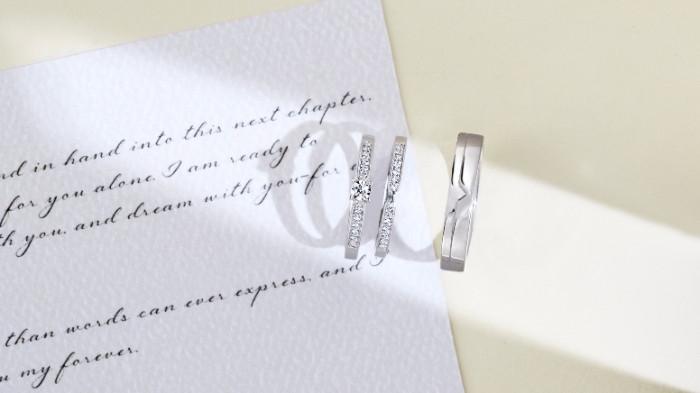 nd in hand into this next chapter.
for you alone. I am ready to
th you, and dream with you-for
than words can ever express, and I
u my forever.